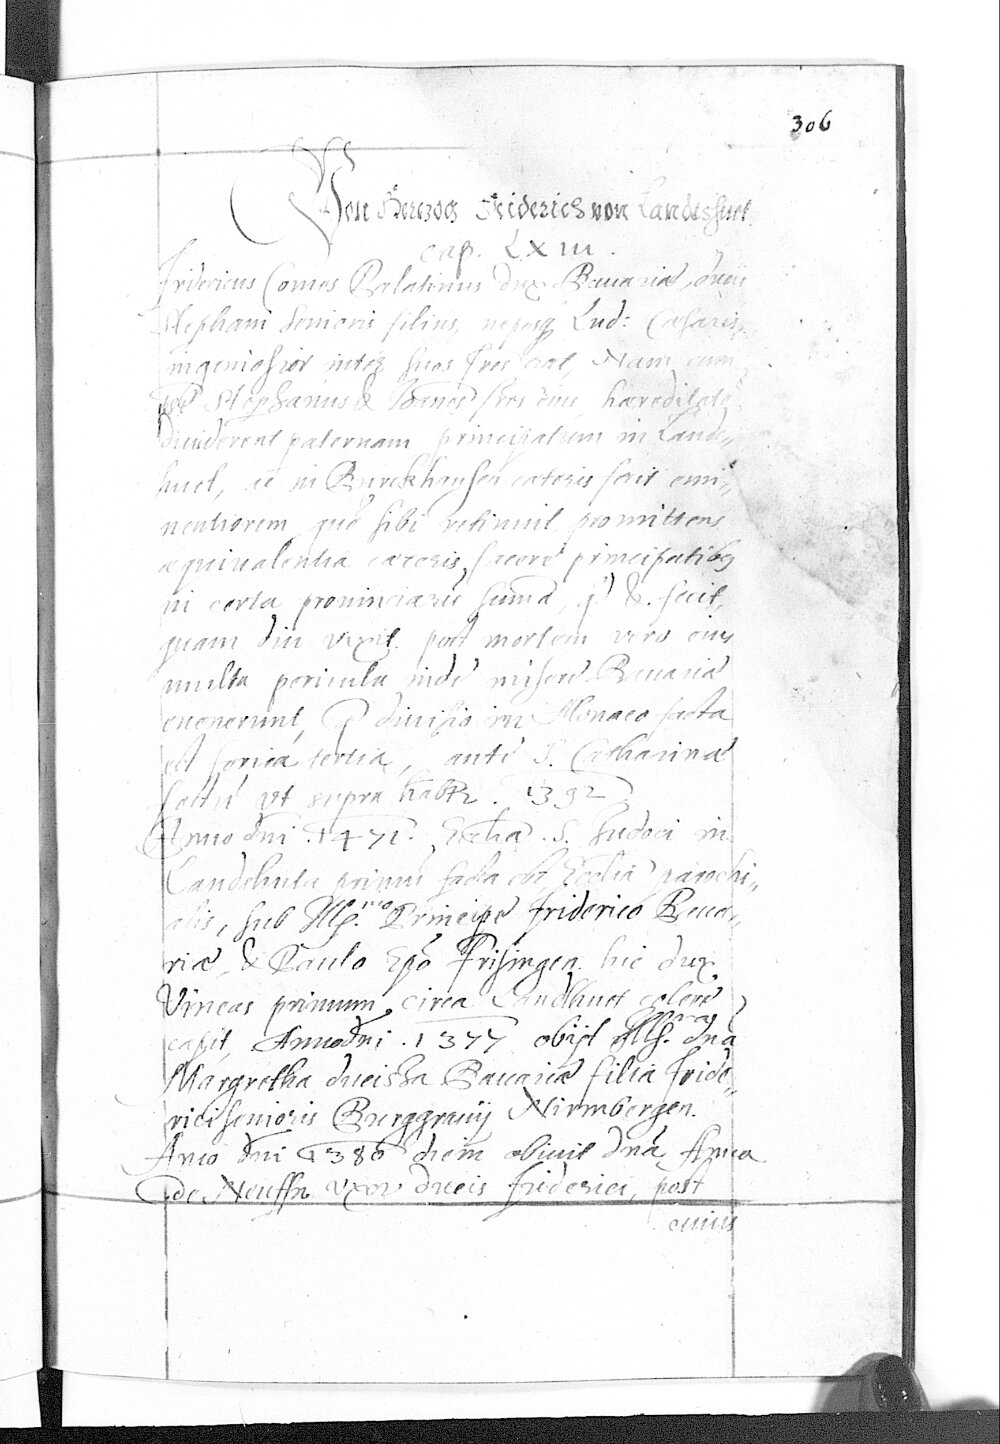 306
Von Herzog Friderich von Landtshuet
cap. LXIII.
Fridericus Comes Palatinus dux Bauariæ, ducis
Stephani senioris filius, neposq Lud: Cæsaris,
ingeniosior inter suos fres erat, Nam cum
ipse Stephanus & Johanes fres eius hæreditatē
diuiderent paternam principatum in Lands„
huet, ac in Burckhausen cæteris fecit emi„
nentiorem, quē sibi retinuit promittens
æquiualentia cæteris facere principatibq
in certa prouinciarū suma, qd & fecit,
quam diu vixit. post mortem vero eius
multa pericula inde miseræ Bauariæ
euenerunt, q diuisio in Monaco facta
est feria tertia, ante S. Catharinæ
factū vt supra habetr. 1392
Anno dni .1471. Ecclia .S. Judoci in
Landshuta primū facta est Ecclia parochi„
alis, sub Illp.mo Principe Friderico Baua„
riæ, & Paulo Epō Frisingen. hic dux
Vineas primum circa Landshuet colere
cæpit, Anno dni .1377 obijt Illp.ma dna
Margretha ducissa Bauariæ filia Fride„
rici senioris Burggrauij Nirmbergen.
Ano dni 1380 diem obiuit dna Anna
de Neuffn vxor ducis Friderici, post
cuius